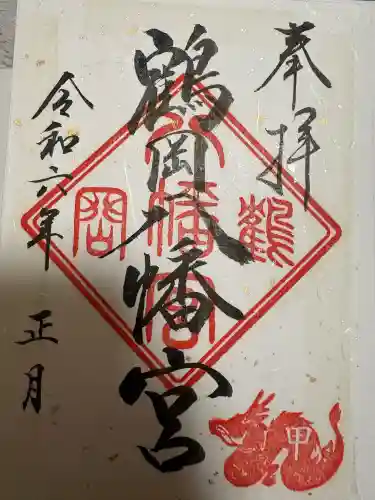 奉拝
鶴岡八幡宮
令和六年
正月
鶴
八幡宮
岡
甲